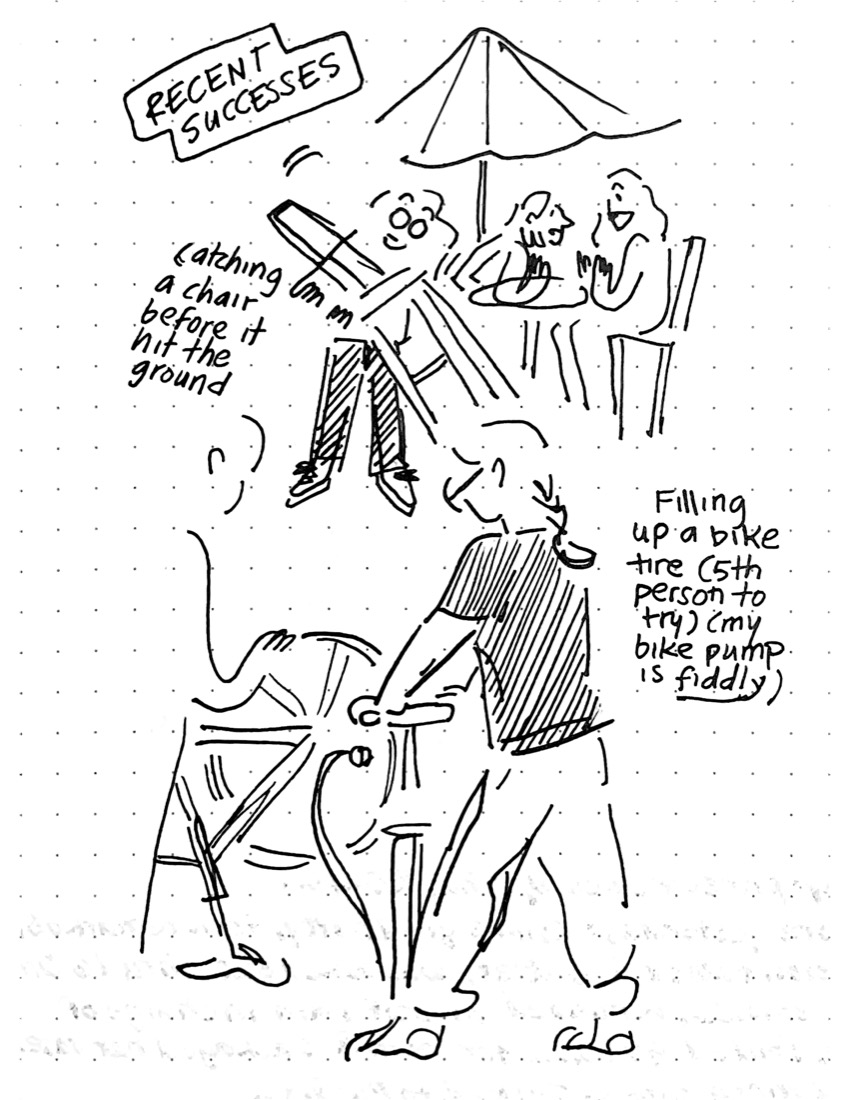 RECENT
SUCCESSES
catching
a chair
before it
hit the
ground
Filling
up a bike
tire (5th
person to
try) (my
bike pump
is fiddly)